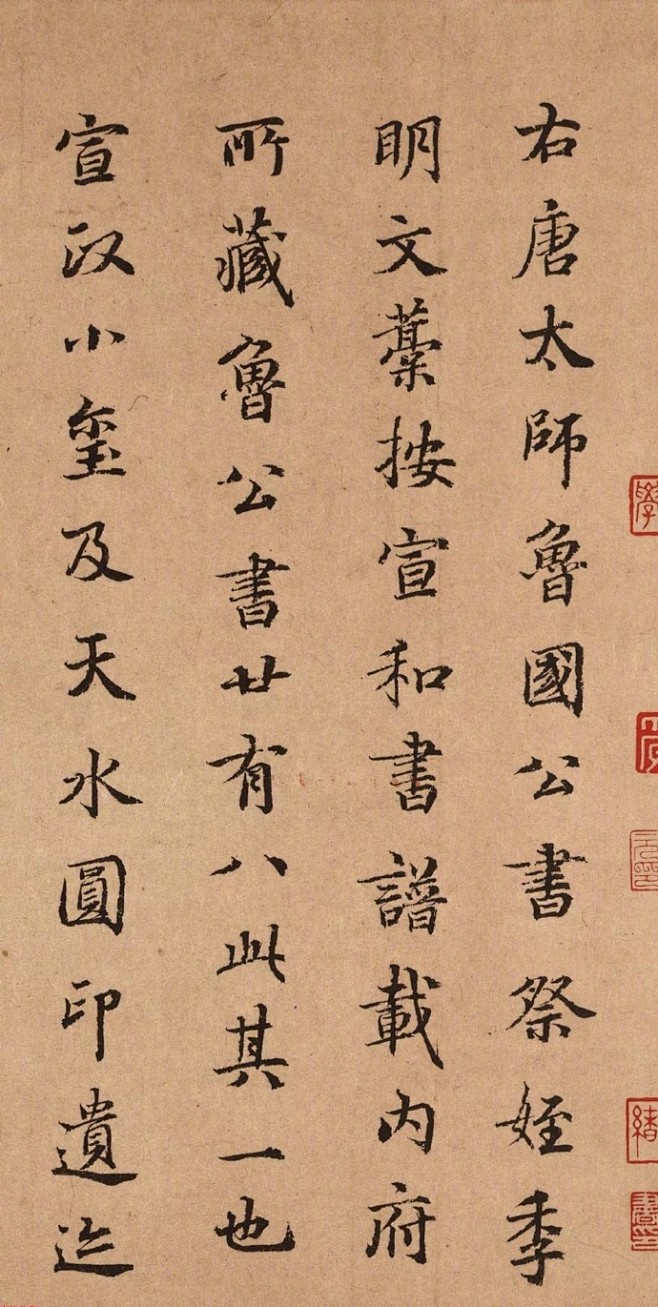 右唐太師魯國公書祭姪季
明文藳按宣和書譜載内府
所藏魯公書廿有八此其一也
宣政小璽及天水圓印遺迹